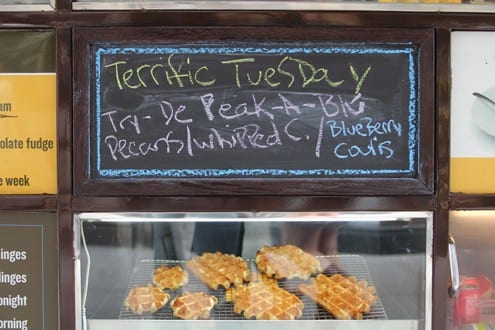 Terrific TuesDay
Try-De Peak-A-Blu
Pecans/whipped C./
BlueBerry
Couis
am
olate fudge
e week
inges
linges
onight
orning